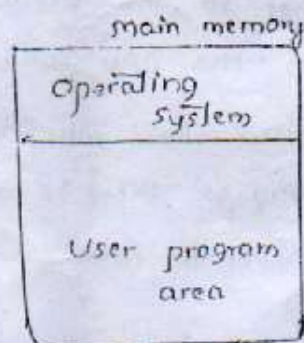 main memory
Operating
System
User program
area